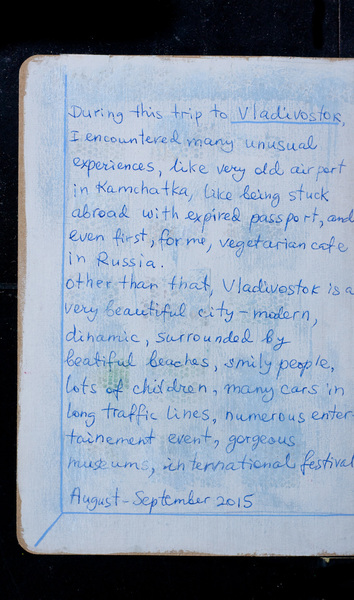 During this trip to Vladivostok,
I encountered many unusual
experiences, like very old airport
in Kamchatka, like being stuck
abroad with expired passport, and
even first, for me, vegetarian cafe
in Russia.
Other than that, Vladivostok is a
very beautiful city - modern,
dinamic, surrounded by
beatiful beaches, smily people,
lots of children, many cars in
long traffic lines, numerous enter-
tainement event, gorgeous
museums, international festival
August - September 2015